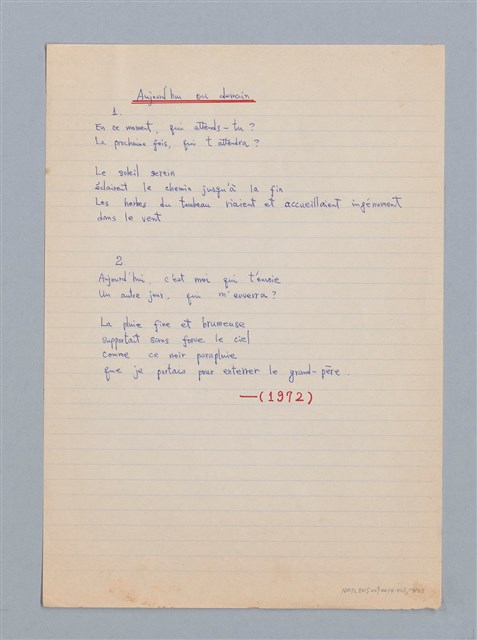 Aujourd'hui ou demain
1.
En ce moment, qui attends-tu ?
La prochaine fois, qui t'attendra ?
Le soleil serein
éclairant le chemin jusqu'à la fin
Les herbes du tombeau riaient et accueillaient ingénument
dans le vent
2
Aujourd'hui, c'est moi qui t'envoie
Un autre jour, qui m'enverra ?
La pluie fine et brumeuse
supportait sans force le ciel
comme ce noir parapluie
que je portais pour enterrer le grand-père...
—(1972)